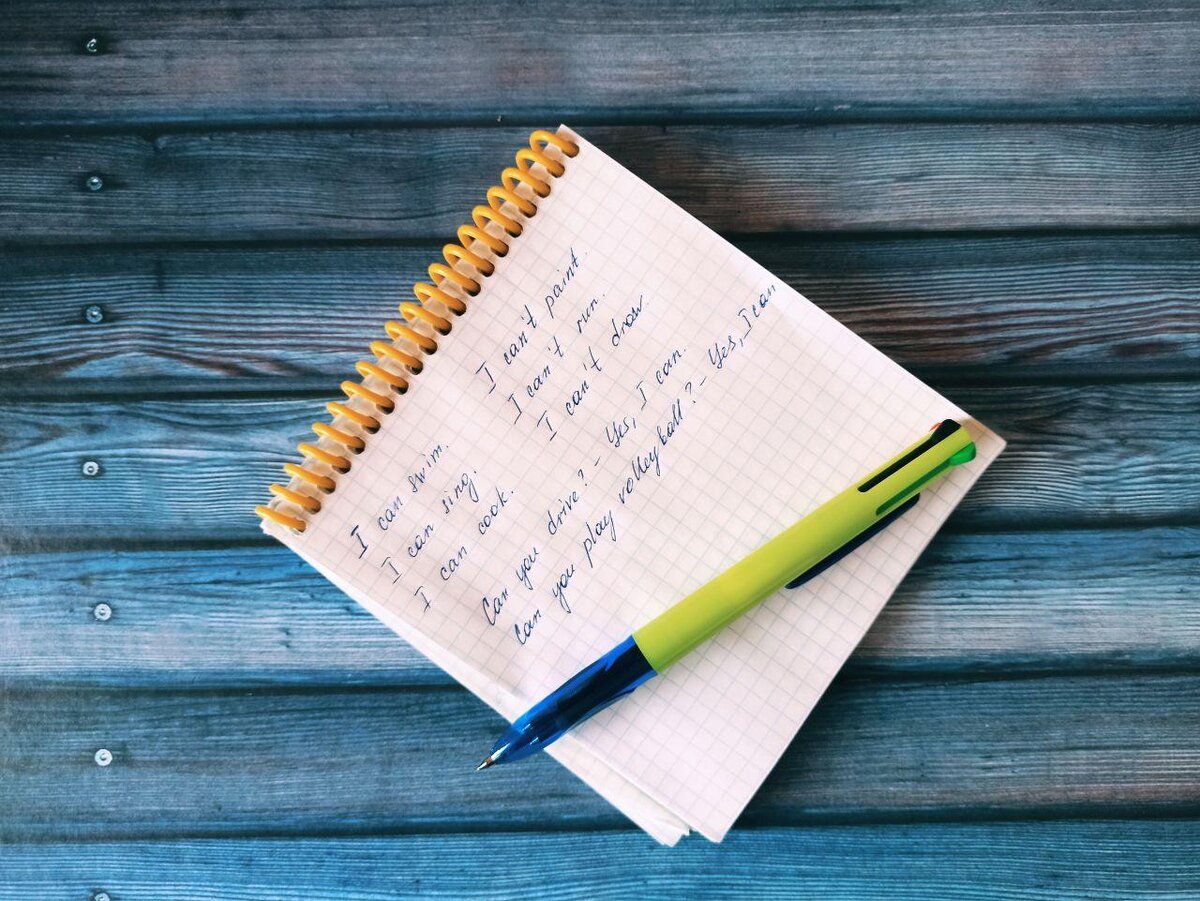 I can swim.
I can sing.
I can cook.
I can't paint.
I can't run.
I can't draw.
Can you drive? - Yes, I can.
Can you play volleyball? - Yes, I can